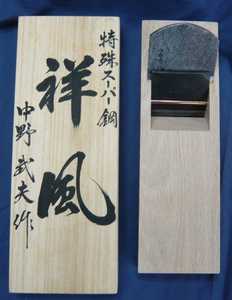 特殊スーパー鋼
祥風
中野武夫作